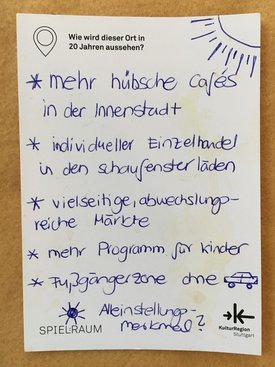 Wie wird dieser Ort in
20 Jahren aussehen?
* mehr hübsche Cafés
in der Innenstadt
* individueller Einzelhandel
in den schaufensterläden
* vielseitige, abwechslungs-
reiche Märkte
* mehr Programm für kinder
* Fußgängerzone ohne
Alleinstellungs-
merkmal?
SPIELRAUM
KulturRegion
Stuttgart